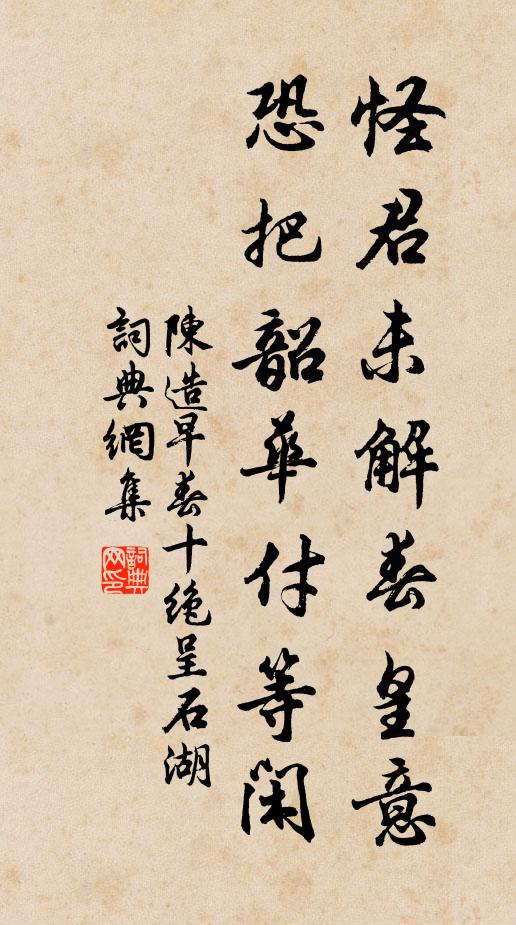 怪君未解春皇意
恐把韶華付等閑
陳造早春十絶呈石湖
詞典網集
詞典网印